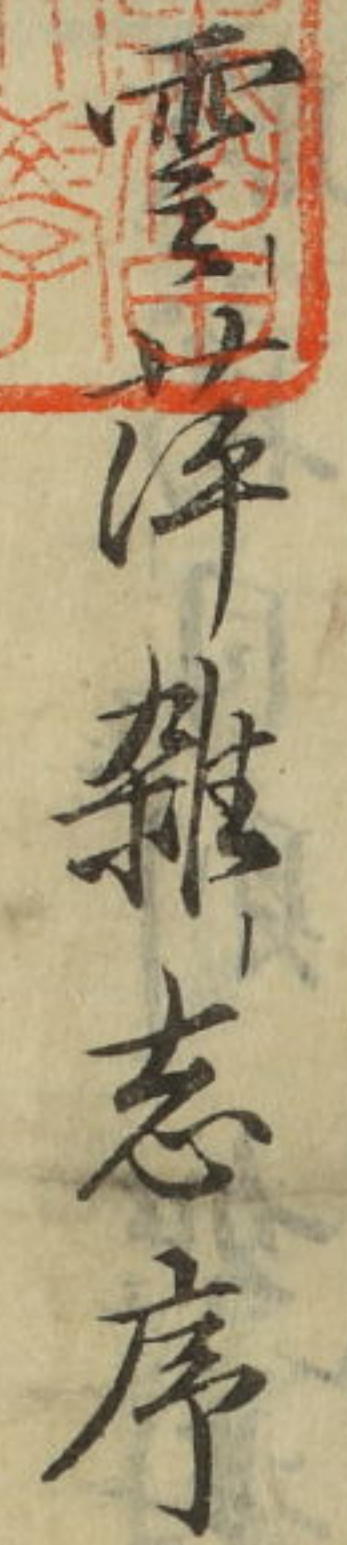 雲萍雜志序